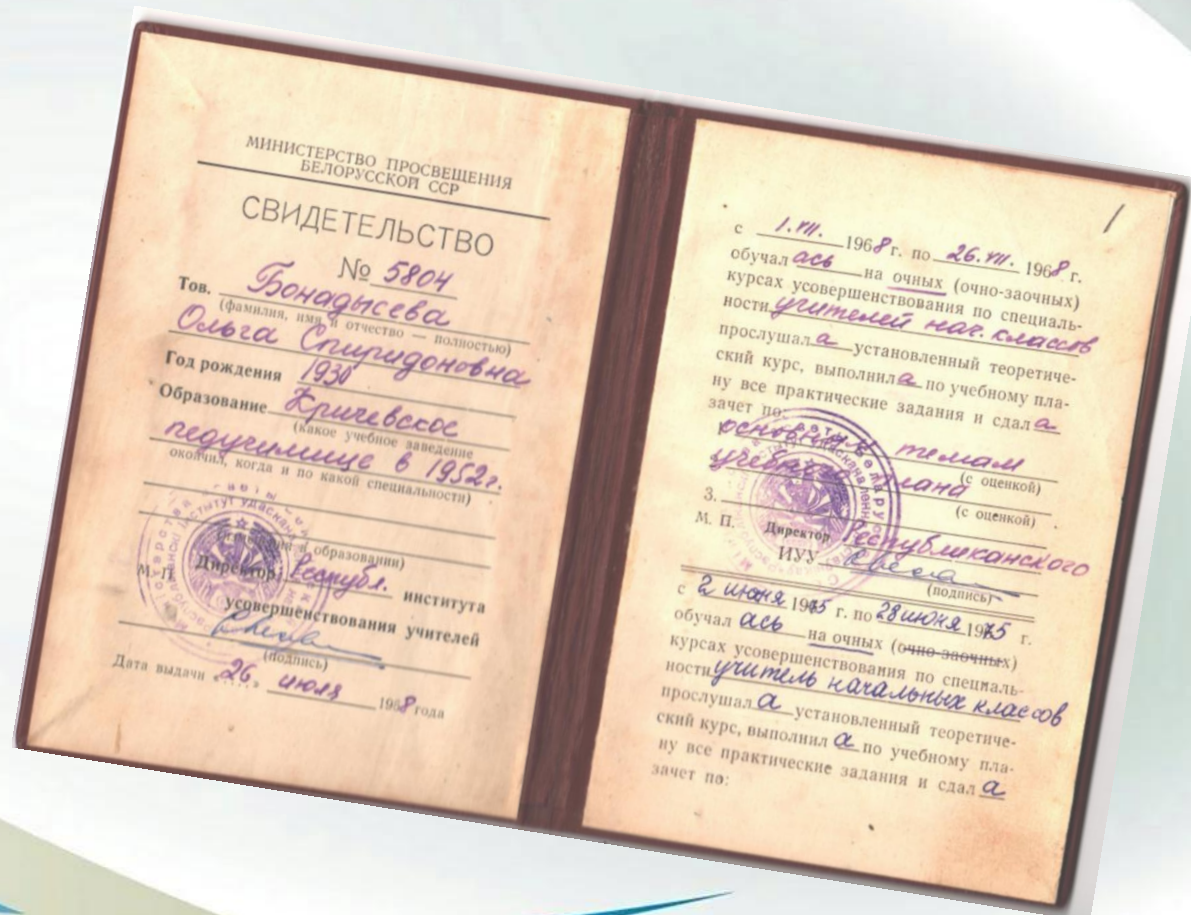 МИНИСТЕРСТВО ПРОСВЕЩЕНИЯ
БЕЛОРУССКОЙ ССР
СВИДЕТЕЛЬСТВО
№ 5804
Тов. Бонадысева
(фамилия, имя и отчество — полностью)
Ольга Спиридоновна
Год рождения 1930
Образование Кричевское
(какое учебное заведение
педучилище в 1952г.
окончил, когда и по какой специальности)
образовании)
М. П. Директор Республ. института
усовершенствования учителей
(подпись)
Дата выдачи «26» июля 1968 года
1
с 1.VII. 1968 г. по 26.VII. 1968 г.
обучал ась на очных (очно-заочных)
курсах усовершенствования по специаль-
ности учителей нач. классов
прослушал а установленный теоретиче-
ский курс, выполнил а по учебному пла-
ну все практические задания и сдал а
зачет по:
основным темам
учебного плана
(с оценкой)
3.
(с оценкой)
М. П. Директор Республиканского
ИУУ
(подпись)
с 2 июня 1975 г. по 28 июня 1975 г.
обучал ась на очных (очно-заочных)
курсах усовершенствования по специаль-
ности учитель начальных классов
прослушал а установленный теоретиче-
ский курс, выполнил а по учебному пла-
ну все практические задания и сдал а
зачет по: